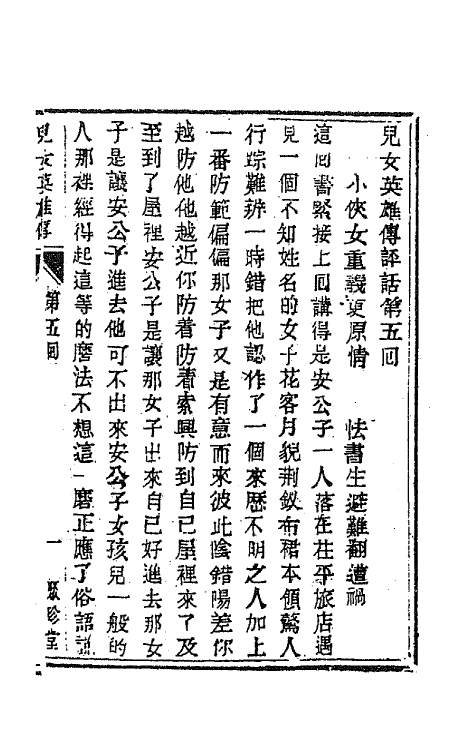 兒女英雄傳評話第五回
小俠女重義更原情 怯書生避難翻遭禍
這回書緊接上回講得是安公子一人落在茌平旅店遇
見一個不知姓名的女子花容月貌荆釵布裙本領驚人
行踪難辨一時錯把他認作了一個來歴不明之人加上
一番防範偏偏那女子又是有意而來彼此陰錯陽差你
越防他他越近你防着防着索興防到自己屋裡來了及
至到了屋裡安公子是讓那女子出來自己好進去那女
子是讓安公子進去他可不出來安公子女孩兒一般的
人那裡經得起這等的磨法不想這一磨正應了俗語說
兒女英雄傳 第五回 一 聚珍堂